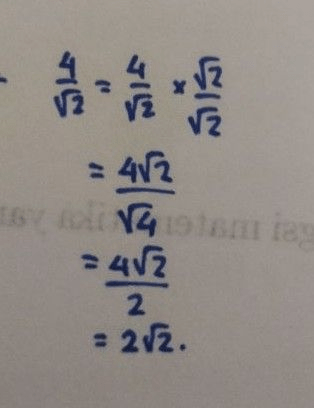 4/√2 = 4/√2 × √2/√2
= 4√2/√4
= 4√2/2
= 2√2.